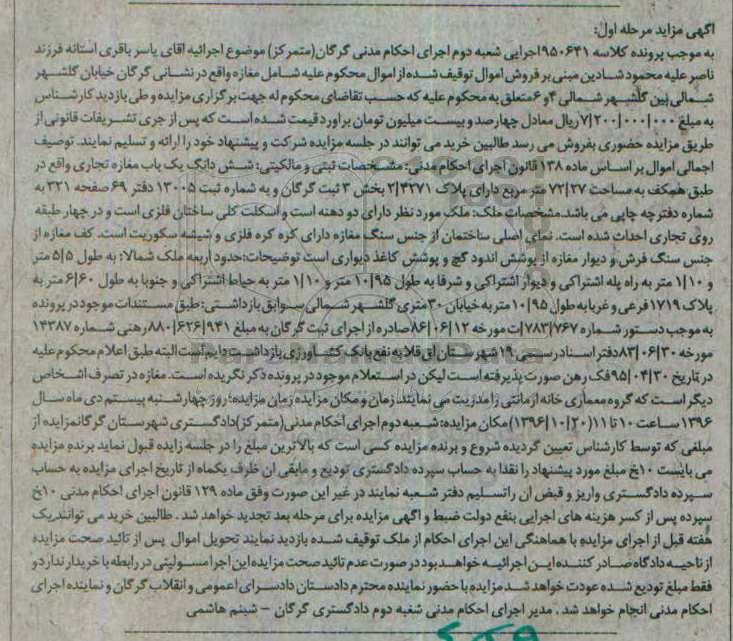 آگهی مزاید مرحله اول:
به موجب پرونده کلاسه ۹۵۰۶۴۱اجرایی شعبه دوم اجرای احکام مدنی گرگان(متمرکز) موضوع اجرائیه اقای یاسر باقری استانه فرزند
ناصر علیه محمود شادین مبنی بر فروش اموال توقیف شده از اموال محکوم علیه شامل مغازه واقع در نشانی گرگان خیابان گلشهر
شمالی بین گلشهر شمالی ۴و۶متعلق به محکوم علیه که حسب تقاضای محکوم له جهت برگزاری مزایده و طی بازدید کارشناس
به مبلغ ۷|۲۰۰|۰۰۰|۰۰۰ریال معادل چهارصد و بیست میلیون تومان براورد قیمت شده است که پس از جری تشریفات قانونی از
طریق مزایده حضوری بفروش می رسد طالبین خرید می توانند در جلسه مزایده شرکت و پیشنهاد خود را ارائه و تسلیم نمایند. توصیف
اجمالی اموال بر اساس ماده ۱۳۸ قانون اجرای احکام مدنی: مشخصات ثبتی و مالکیتی: شش دانگ یک باب مغازه تجاری واقع در
طبق همکف به مساحت ۷۲|۲۷ متر مربع دارای پلاک ۲|۴۲۷۱ بخش ۳ ثبت گرگان و به شماره ثبت ۱۳۰۰۵ دفتر ۶۹ صفحه ۳۲۱ به
شماره دفترچه چاپی می باشد.مشخصات ملک: ملک مورد نظر دارای دو دهنه است و اسکلت کلی ساختان فلزی است و در چهار طبقه
روی تجاری احداث شده است. نمای اصلی ساختمان از جنس سنگ مغازه دارای کره کره فلزی و شیشه سکوریت است. کف مغازه از
جنس سنگ فرش و دیوار مغازه از پوشش اندود گچ و پوشش کاغذ دیواری است توضیحات:حدود اربعه ملک شمالا: به طول ۵|۵ متر
و ۱|۱۰ متر به راه پله اشتراکی و دیوار اشتراکی و شرقا به طول ۱۰|۹۵ متر و ۱|۱۰ متر به حیاط اشتراکی و جنوبا به طول ۶|۶۰ متر به
پلاک ۱۷۱۹ فرعی و غربا به طول ۱۰|۹۵ متر به خیابان ۳۰متری گلشهر شمالی سوابق بازداشتی: طبق مستندات موجود در پرونده
به موجب دستور شماره ۷۸۳|۷۶۷|ت مورخه ۱۲|۰۶|۸۶ صادره از اجرای ثبت گرگان به مبلغ ۸۸۰|۶۲۶|۹۴۱رهنی شماره ۱۴۳۸۷
مورخه ۳۰|۰۶|۸۳دفتر اسناد رسمی ۱۹ شهرستان اق قلا به نفع بانک کشاورزی بازداشت دایم است البته طبق اعلام محکوم علیه
در تاریخ ۳۰|۰۴|۹۵فک رهن صورت پذیرفته است لیکن در استعلام موجود در پرونده ذکر نگریده است. مغازه در تصرف اشخاص
دیگر است که گروه معماری خانه ازمانتی را مدریت می نمایند. زمان و مکان مزایده زمان مزایده: روز چهارشنبه بیستم دی ماه سال
۱۳۹۶ ساعت ۱۰ تا ۱۱(۲۰|۱۰|۱۳۹۶) مکان مزایده: شعبه دوم اجرای احکام مدنی(متمرکز)دادگستری شهرستان گرگانمزایده از
مبلغی که توسط کارشناس تعیین گردیده شروع و برنده مزایده کسی است که بالاترین مبلغ را در جلسه زایده قبول نماید برنده مزایده
می بایست ۱۰خ مبلغ مورد پیشنهاد را نقدا به حساب سپرده دادگستری تودیع و مابقی ان ظرف یکماه از تاریخ اجرای مزایده به حساب
سپرده دادگستری واریز و قبض ان راتسلیم دفتر شعبه نمایند در غیر این صورت وفق ماده ۱۲۹ قانون اجرای احکام مدنی ۱۰خ
سپرده پس از کسر هزینه های اجرایی بنفع دولت ضبط و اگهی مزایده برای مرحله بعد تجدید خواهد شد . طالبین خرید می توانند یک
هفته قبل از اجرای مزایده با هماهنگی این اجرای احکام از ملک توقیف شده بازدید نمایند تحویل اموال پس از تائید صحت مزایده
از ناحیه دادگاه صادر کننده این اجرائیه خواهد بود در صورت عدم تائید صحت مزایده این اجرا مسولیتی در رابطه با خریدار ندارد و
فقط مبلغ تودیع شده عودت خواهد شد مزایده با حضور نماینده محترم دادستان دادسرای اعمومی و انقلاب گرگان و نماینده اجرای
احکام مدنی انجام خواهد شد . مدیر اجرای احکام مدنی شعبه دوم دادگستری گرگان - شبنم هاشمی